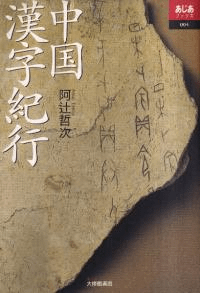 中国
漢字紀行
阿辻哲次
あじあ
ブックス
004
大修館書店